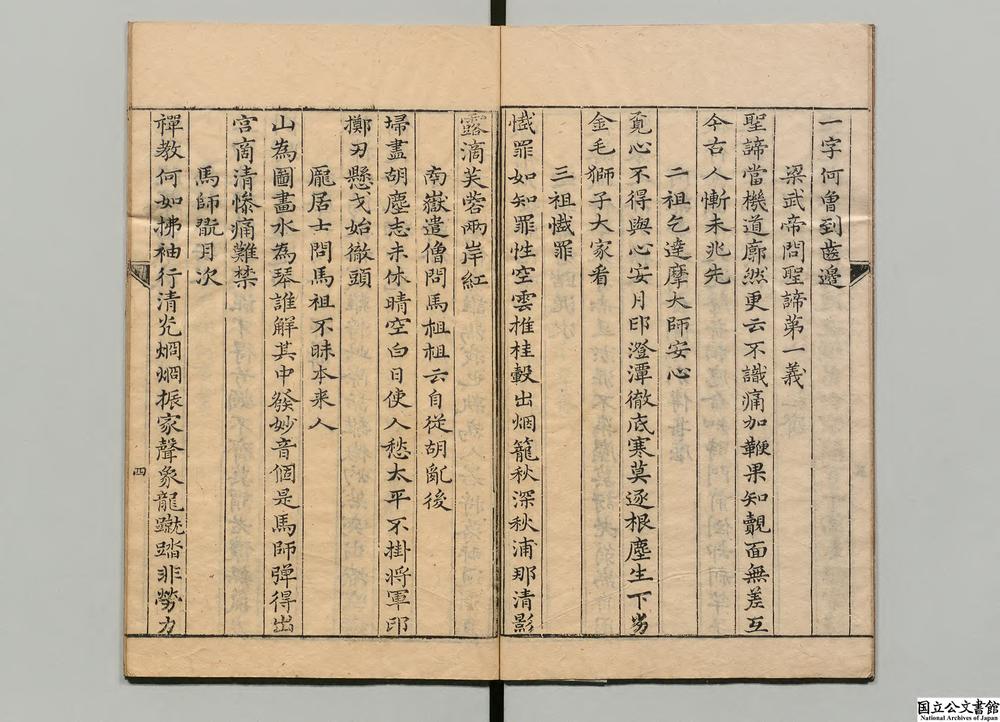 一字何曾到齒邊
梁武帝問聖諦第一義
聖諦當機道廓然更云不識痛加鞭果知覿面無差互
今古人慚未兆先
二祖乞達摩大師安心
覓心不得與心安月印澄潭徹底寒莫逐根塵生下劣
金毛獅子大家看
三祖懺罪
懺罪如知罪性空雲推桂轂出烟籠秋深秋浦那清影
露滴芙蓉兩岸紅
南嶽遣僧問馬祖祖云自從胡亂後
埽盡胡塵志未休晴空白日使人愁太平不掛將軍印
擲刃懸戈始徹頭
龐居士問馬祖不昧本來人
山為圖畫水為琴誰解其中發妙音個是馬師彈得出
宮商清慘痛難禁
馬師翫月次
禪教何如拂袖行清光烱烱振家聲象龍蹴踏非勞力
四
国立公文書館
National Archives of Japan